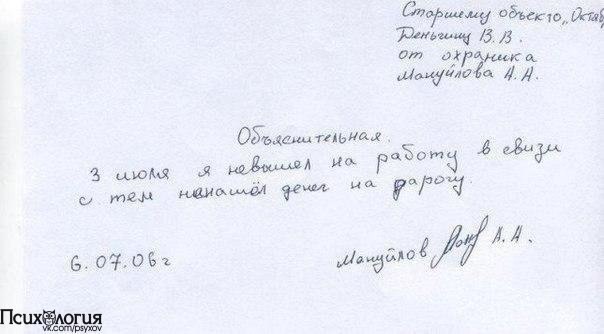 Старшему объекто „Октяб
Деньгищ В.В.
от охраника
Мануйлова А.А.
Объяснительная.
3 июля я невышел на работу в свизи
с тем ненашёл денег на дарогу.
6.07.06г Мануйлов А.А.
Психология
vk.com/psyxov